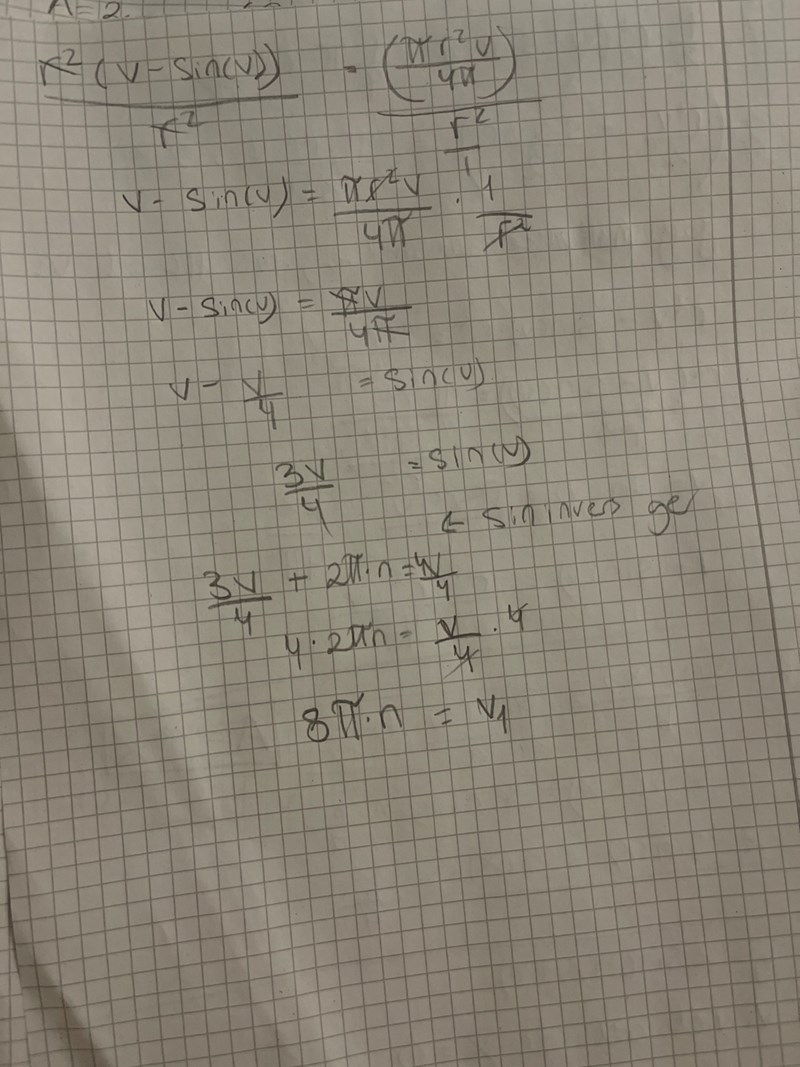 A = 2.
r² (v - sin(v)) / r² = (πr²v / 4π) / (r² / 1)
v - sin(v) = πr²v / 4π · 1 / r²
v - sin(v) = πv / 4π
v - v/4 = sin(v)
3v/4 = sin(v)
← sin invers ger
3v/4 + 2π·n = 4v/4
4·2πn = v/4 · 4
8π·n = v₁